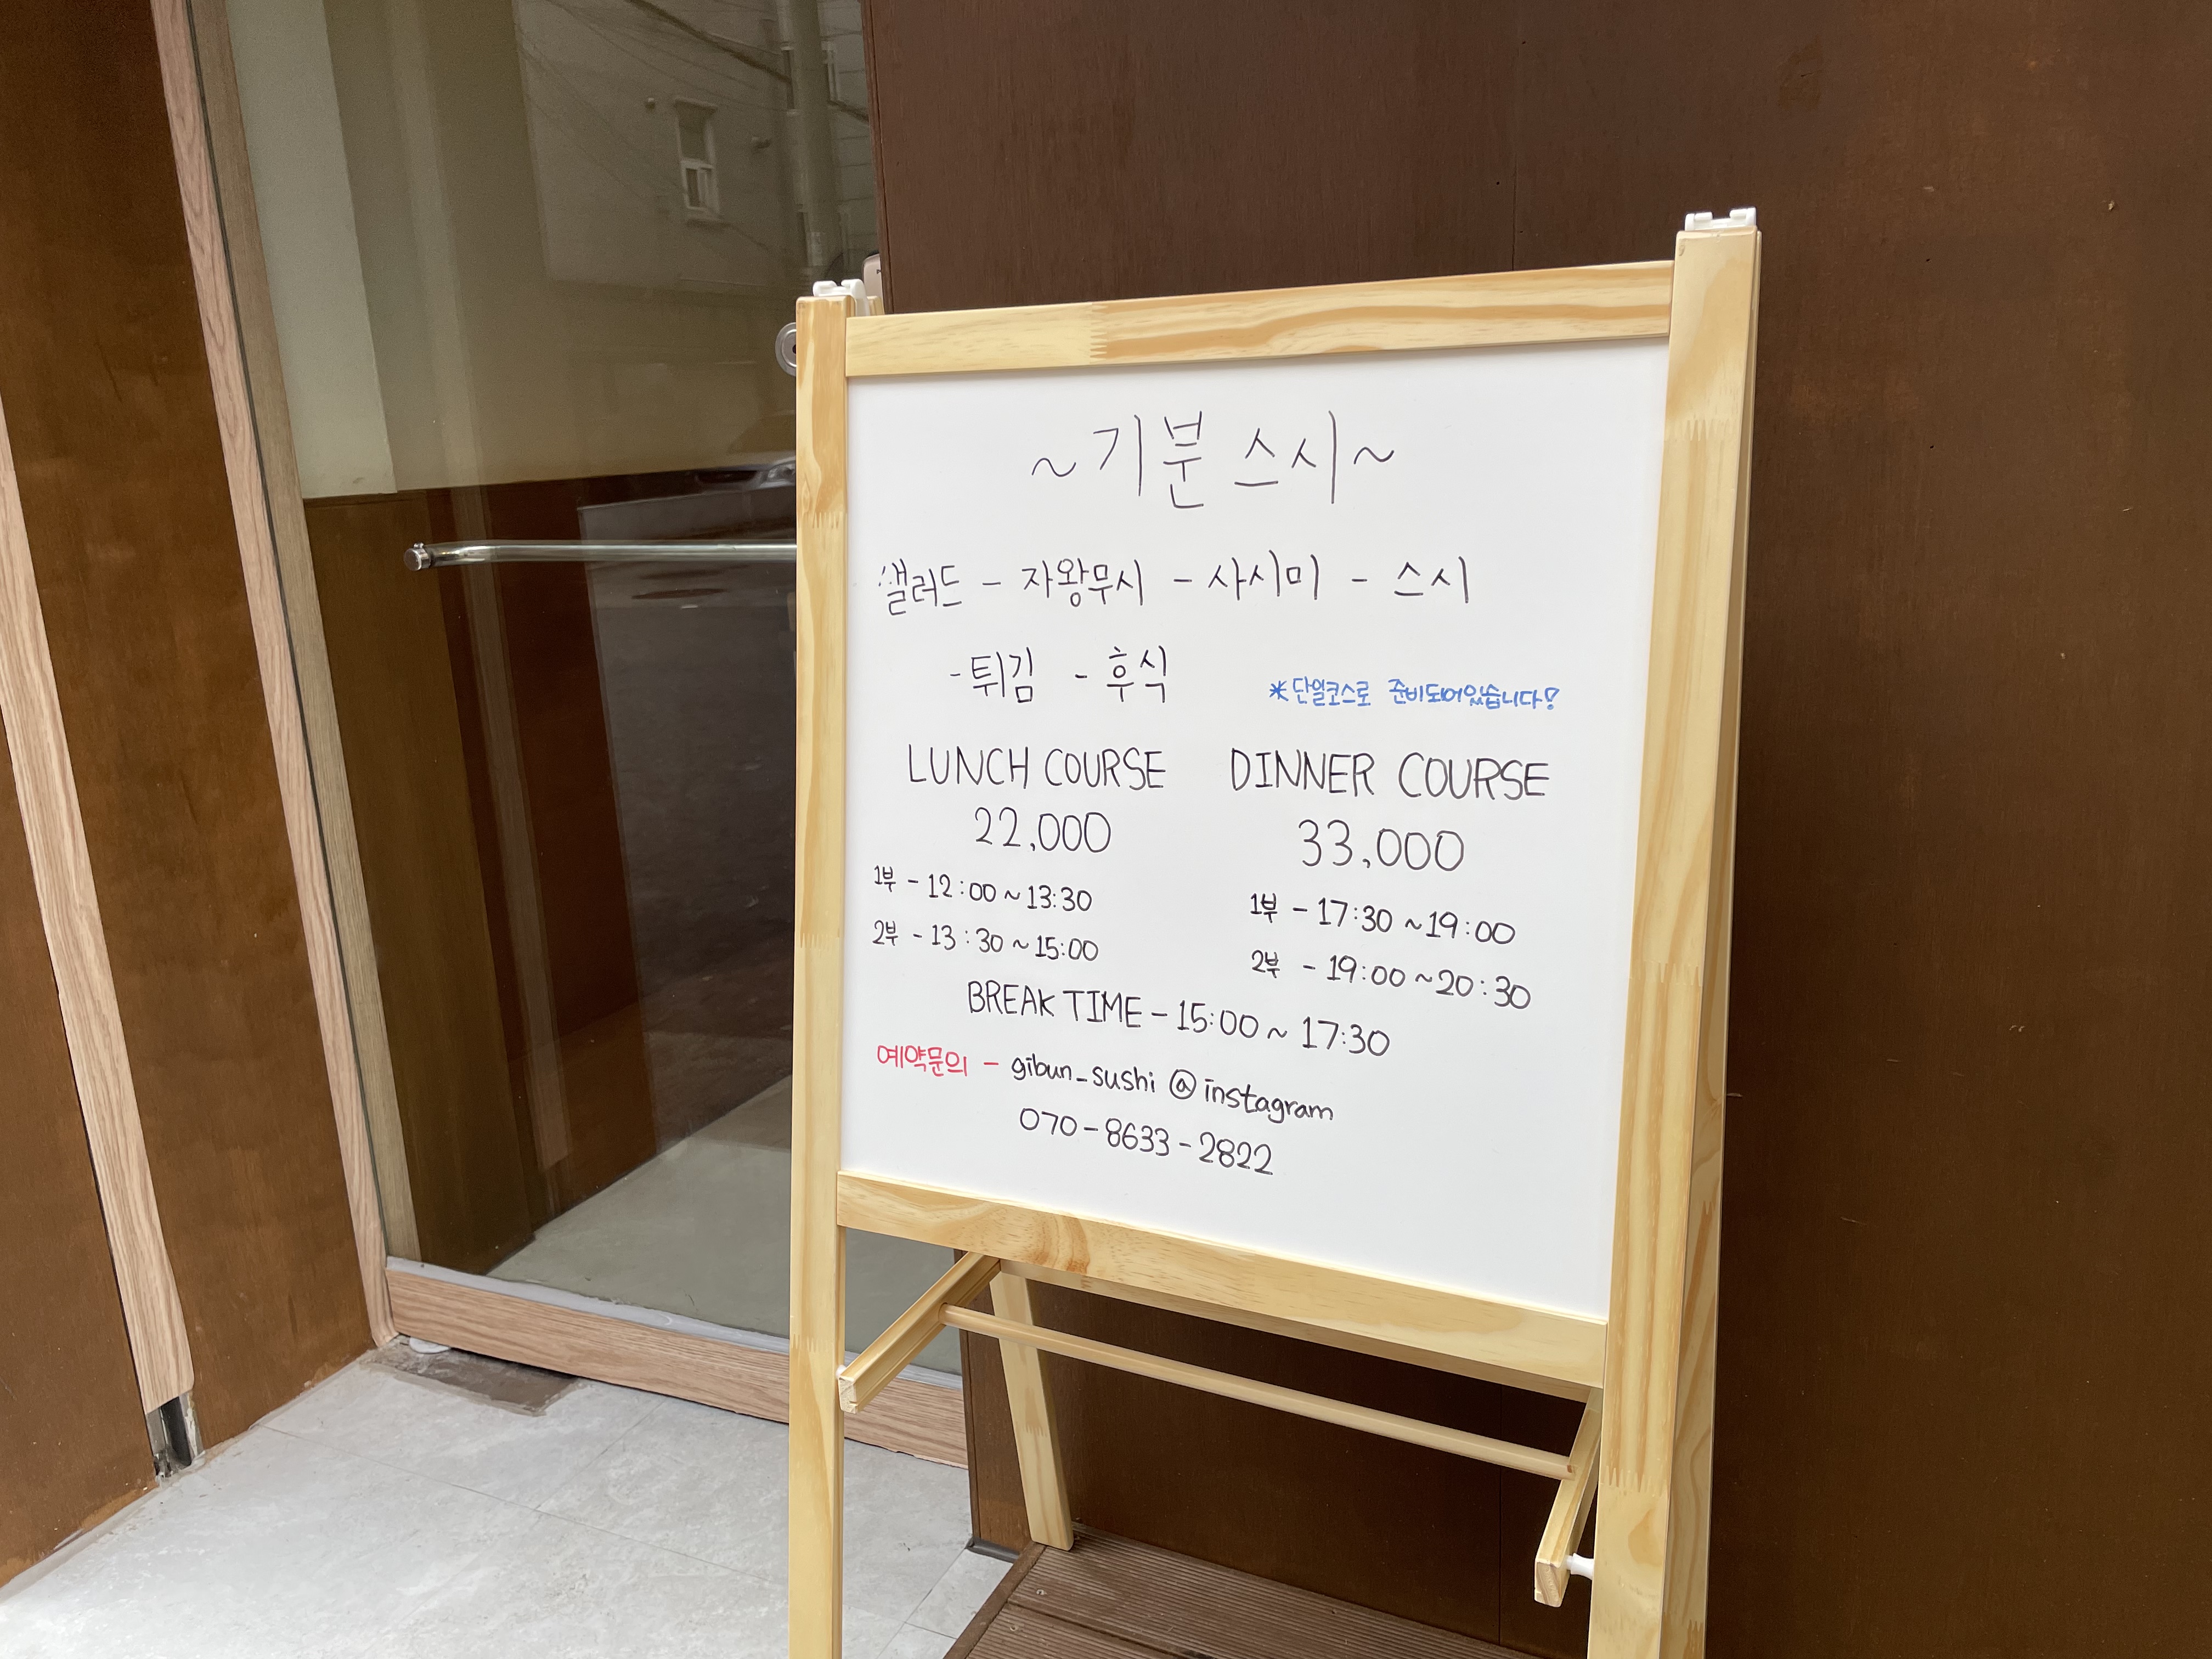 ~기분 스시~
샐러드 - 자왕무시 - 사시미 - 스시
- 튀김 - 후식
*단일코스로 준비되어있습니다!
LUNCH COURSE
22,000
1부 - 12:00 ~ 13:30
2부 - 13:30 ~ 15:00
DINNER COURSE
33,000
1부 - 17:30 ~ 19:00
2부 - 19:00 ~ 20:30
BREAK TIME - 15:00 ~ 17:30
예약문의 - gibun_sushi @ instagram
070-8633-2822